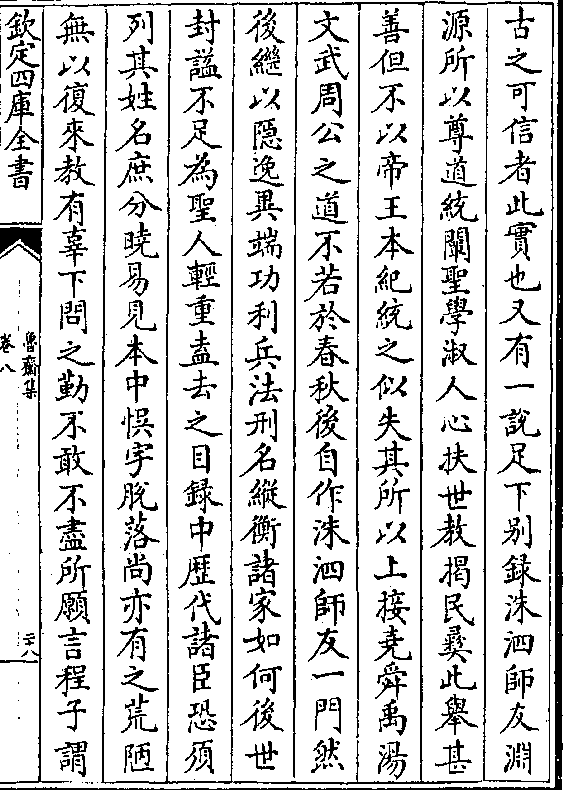 古之可信者此實也又有一說足下别錄洙泗師友淵
源所以尊道統闡聖學淑人心扶世教揭民彝此舉甚
善但不以帝王本紀統之似失其所以上接堯舜禹湯
文武周公之道不若於春秋後自作洙泗師友一門然
後繼以隠逸異端功利兵法刑名縱衡諸家如何後世
封謚不足為聖人輕重盍去之目録中歴代諸臣恐須
列其姓名庶分曉易見本中悞字脫落尚亦有之荒陋
無以復來教有辜下問之勤不敢不盡所願言程子謂
欽定四庫全書
魯齋集
卷八
二十八